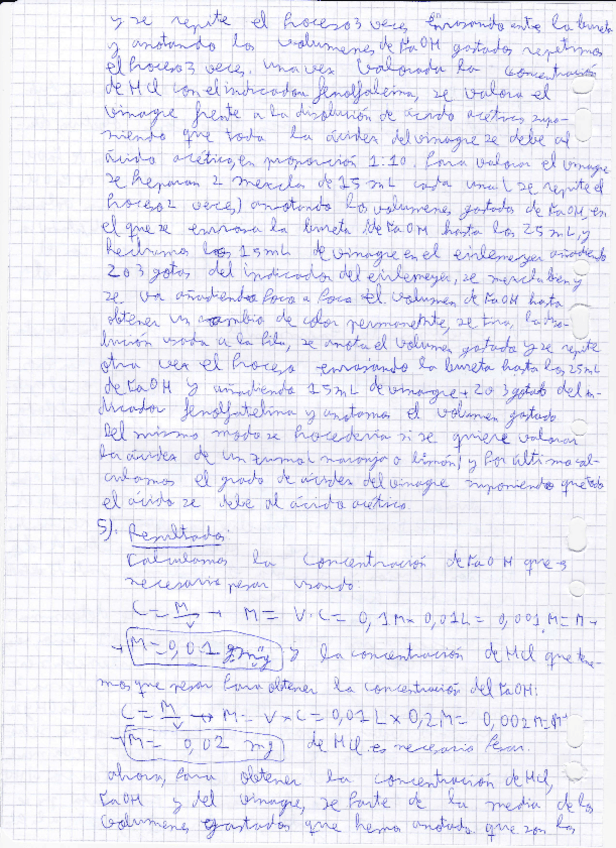 y se repite el proceso 3 veces enrasando entre la bureta
y anotando los volumenes de NaOH gastados repetimos
el proceso 3 veces, una vez valorada la concentración
de HCl con el indicador fenolftaleina, se valora el
vinagre frente a la disolución de ácido acético supo-
niendo que toda la ácidez del vinagre se debe al
ácido acético, en proporción 1:10. Para valorar el vinagre
se preparan 2 mezclas de 15 mL cada una (se repite el
proceso 2 veces) anotando los volumenes gastados de NaOH, en
el que se enrasa la bureta de NaOH hasta los 25 mL y
hechamos los 15 mL de vinagre en el erlenmeyer añadiendo
2 o 3 gotas del indicador del erlenmeyer, se mezcla bien y
se va añadiendo poco a poco el volumen de NaOH hasta
obtener un cambio de color permanente, se tira la diso-
lución usada a la pila, se anota el volumen gastado y se repite
otra vez el proceso enrasando la bureta hasta los 25 mL
de NaOH y añadiendo 15 mL de vinagre + 2 o 3 gotas del in-
dicador fenolftaleina y anotamos el volumen gastado
Del mismo modo se procederia si se quiere valorar
la ácidez de un zumo( naranja o limón) y por último cal-
culamos el grado de ácidez del vinagre suponiendo que todo
el ácido se debe al ácido acético.
5). Resultados:
Calculamos la concentración de NaOH que es
necesario pesar usando:
C = M/V → M = V·C = 0,1M x 0,01L = 0,001 M = M →
→ M = 0,01 y la concentración de HCl que tene-
mos que pesar para obtener la concentración del NaOH:
C = M/V → M = V x C = 0,01 L x 0,2 M = 0,002
→ M = 0,02 mg de HCl es necesario pesar.
ahora, para obtener la concentración de HCl,
NaOH y del vinagre, se parte de la media de los
volumenes gastados que hemos anotado que son los